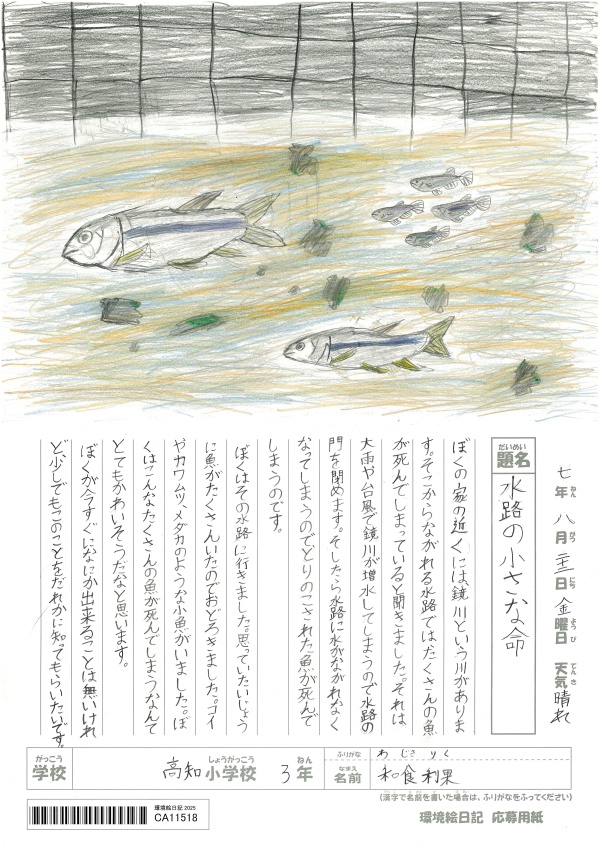 七年 八月 二十二日 金曜日 天気 晴れ
ねん がつ にち ようび てんき
だいめい
題名 水路の小さな命
ぼくの家の近くには、鏡川という川がありま
す。そこからながれる水路ではたくさんの魚
が死んでしまっていると聞きました。それは、
大雨や台風で鏡川が増水してしまうので水路の
門を閉めます。そしたら水路に水がながれなく
なってしまうのでとりのこされた魚が死んで
しまうのです。
ぼくはその水路に行きました。思っていたいじょう
に魚がたくさんいたのでおどろきました。コイ
やカワムツ、メダカのような小魚がいました。ぼ
くはこんなたくさんの魚が死んでしまうなんて
とてもかわいそうだなと思います。
ぼくが今すぐになにか出来ることは無いけれ
ど、少しでもこのことをだれかに知ってもらいたいです。
がっこう しょうがっこう ねん
学校 高知 小学校 3年
ふりがな わ じき りく
なまえ
名前 和食 利果
(漢字で名前を書いた場合は、ふりがなをふってください)
環境絵日記 2025
CA11518
環境絵日記 応募用紙